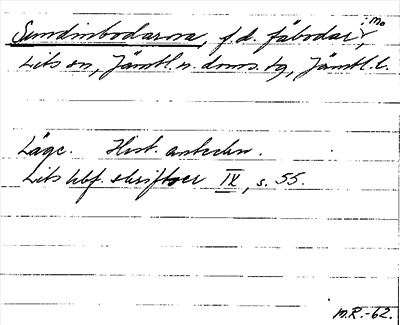 Sundinbodarna, f.d. fäbodar i mo
Lits sn, Jämtl. n. doms. tg, Jämtl. l.
Läge. Hist. anteckn.
Lits hbf. skriftser IX, s. 55.
M.R.-62.